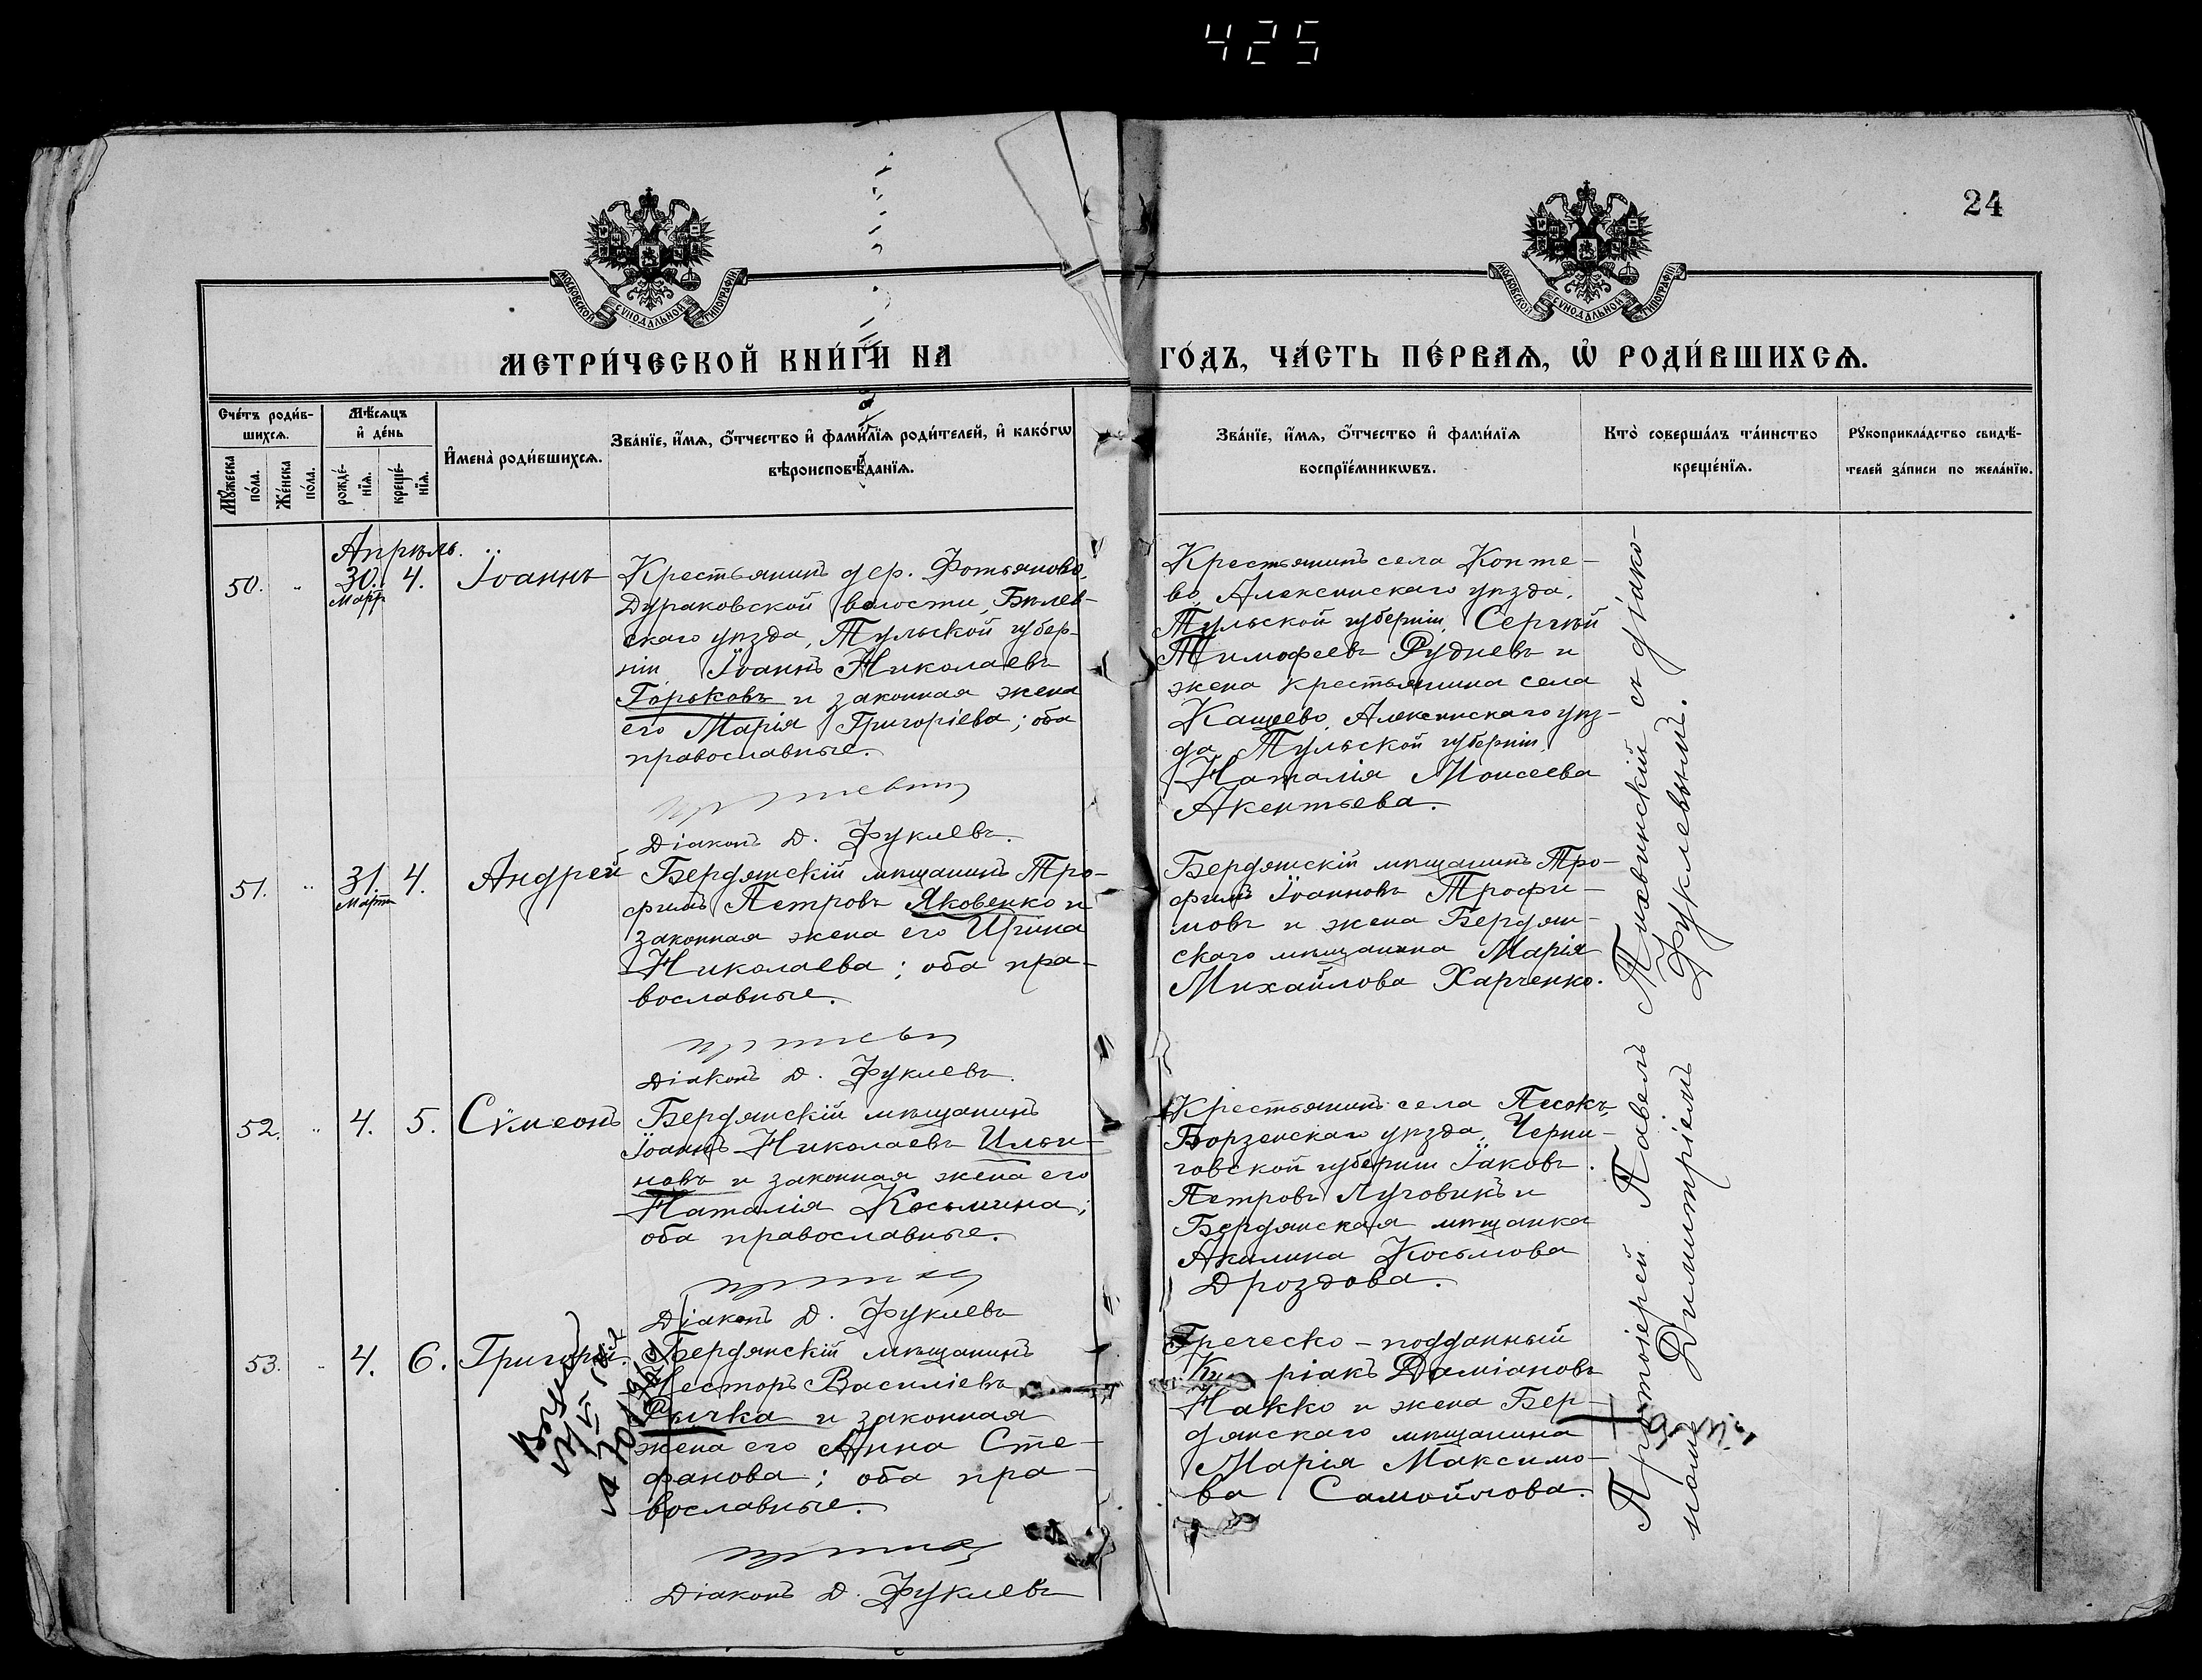 425
24
МОСКОВСКОЙ СѴНОДАЛЬНОЙ ТИПОГРАФІИ
МОСКОВСКОЙ СѴНОДАЛЬНОЙ ТИПОГРАФІИ
МЕТРИ́ЧЕСКОЙ КНИ́ГИ НА
ГО́ДЪ, ЧА́СТЬ ПЕ́РВАѦ, Ѡ҆ РОДИ́ВШИХСѦ.
Сче́тъ роди́в-
шихсѧ.
Мѣ́сѧцъ
и҆ де́нь
Мꙋ́жеска
по́ла.
Же́нска
по́ла.
рожде́-
нїѧ.
креще́-
нїѧ.
И҆мена̀ роди́вшихсѧ.
Зва́нїе, и҆́мѧ, ѻ҆́тчество и҆ фами́лїѧ роди́телей, и҆ како́гѡ
вѣроисповѣ́данїѧ.
Зва́нїе, и҆́мѧ, ѻ҆́тчество и҆ фами́лїѧ
воспрїе́мникѡвъ.
Кто̀ соверша́лъ та́инство
креще́нїѧ.
Рꙋкоприкла́дство свидѣ́-
телей за́писи по жела́нїю.
Апрѣль.
50. " 30. Март. 4. Іоаннъ
Крестьянинъ дер. Фотьяново,
Дураковской волости, Бѣлев-
скаго уѣзда, Тульской губер-
ніи Іоаннъ Николаевъ
Горьковъ и законная жена
его Марія Григоріева; оба
православные.
Діаконъ Д. Фуклевъ.
Крестьянинъ села Копте-
во, Алексинскаго уѣзда,
Тульской губерніи, Сергѣй
Тимофеевъ Рудневъ и
жена крестьянина села
Кащеево, Алексинскаго уѣз-
да, Тульской губерніи,
Наталія Моисеева
Акентьева.
51. " 31. Март. 4. Андрей
Бердянскій мѣщанинъ Тро-
фимъ Петровъ Яковенко и
законная жена его Ирина
Николаева; оба пра-
вославные.
Діаконъ Д. Фуклевъ.
Бердянскій мѣщанинъ Тро-
фимъ Іоанновъ Трофи-
мовъ и жена Бердян-
скаго мѣщанина Марія
Михайлова Харченко.
52. " 4. 5. Сѵмеонъ
Бердянскій мѣщанинъ
Іоаннъ Николаевъ Ильи-
новъ и законная жена его
Наталія Косьмина;
оба православные.
Діаконъ Д. Фуклевъ
Крестьянинъ села Песокъ,
Борзенскаго уѣзда, Черни-
говской губерніи Іаковъ
Петровъ Луговикъ и
Бердянская мѣщанка
Акилина Косьмова
Дроздова.
53. " 4. 6. Григорій.
Бердянскій мѣщанинъ
Несторъ Василіевъ
и законная
жена его Анна Сте-
фанова; оба пра-
вославные.
Діаконъ Д. Фуклевъ
Греческо-подданный
Ки ріакъ Даміановъ
Накко и жена Бер-
дянскаго мѣщанина
Марія Максимо-
ва Самойлова.
Протоіерей Павелъ Пхавинскій съ діако-
номъ Димитріемъ Фуклевымъ.